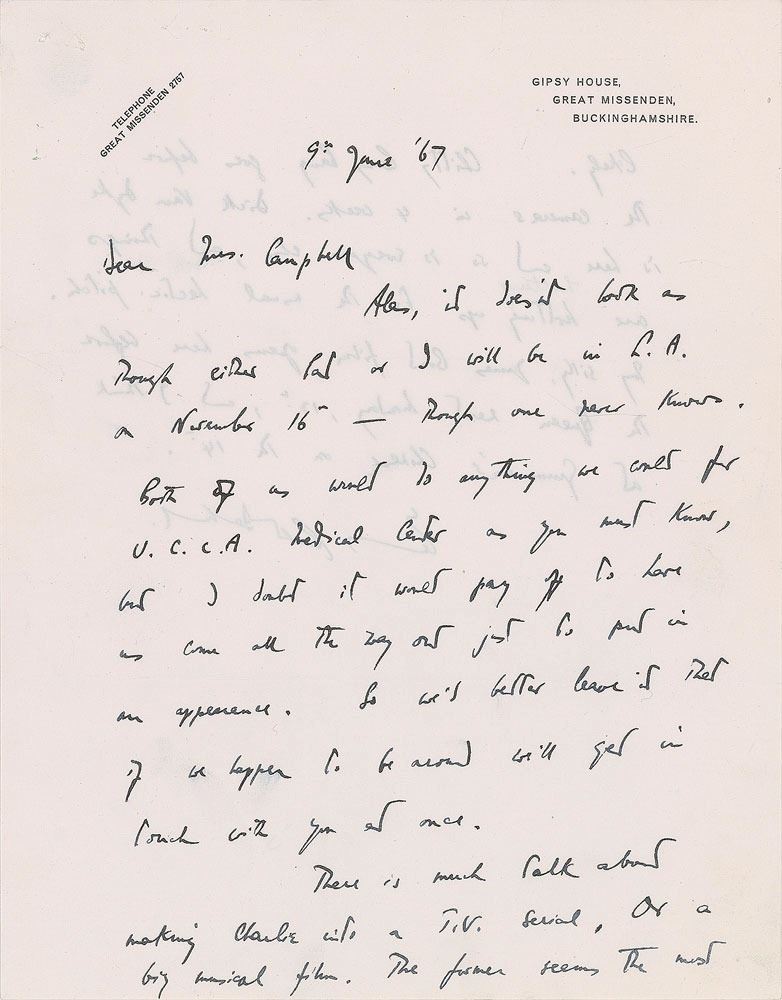 TELEPHONE
GREAT MISSENDEN 2757
GIPSY HOUSE,
GREAT MISSENDEN,
BUCKINGHAMSHIRE.
9th June '67
Dear Mrs. Campbell
Alas, it does'nt look as
though either Pat or I will be in L.A.
on November 16th — though one never knows.
Both of us would do anything we could for
U.C.L.A. Medical Center as you must know,
but I doubt it would pay off to have
us come all the way out just to put in
an appearance. So we'd better leave it that
if we happen to be around we'll get in
touch with you at once.
There is much talk about
making Charlie into a T.V. serial, or a
big musical film. The former seems the most